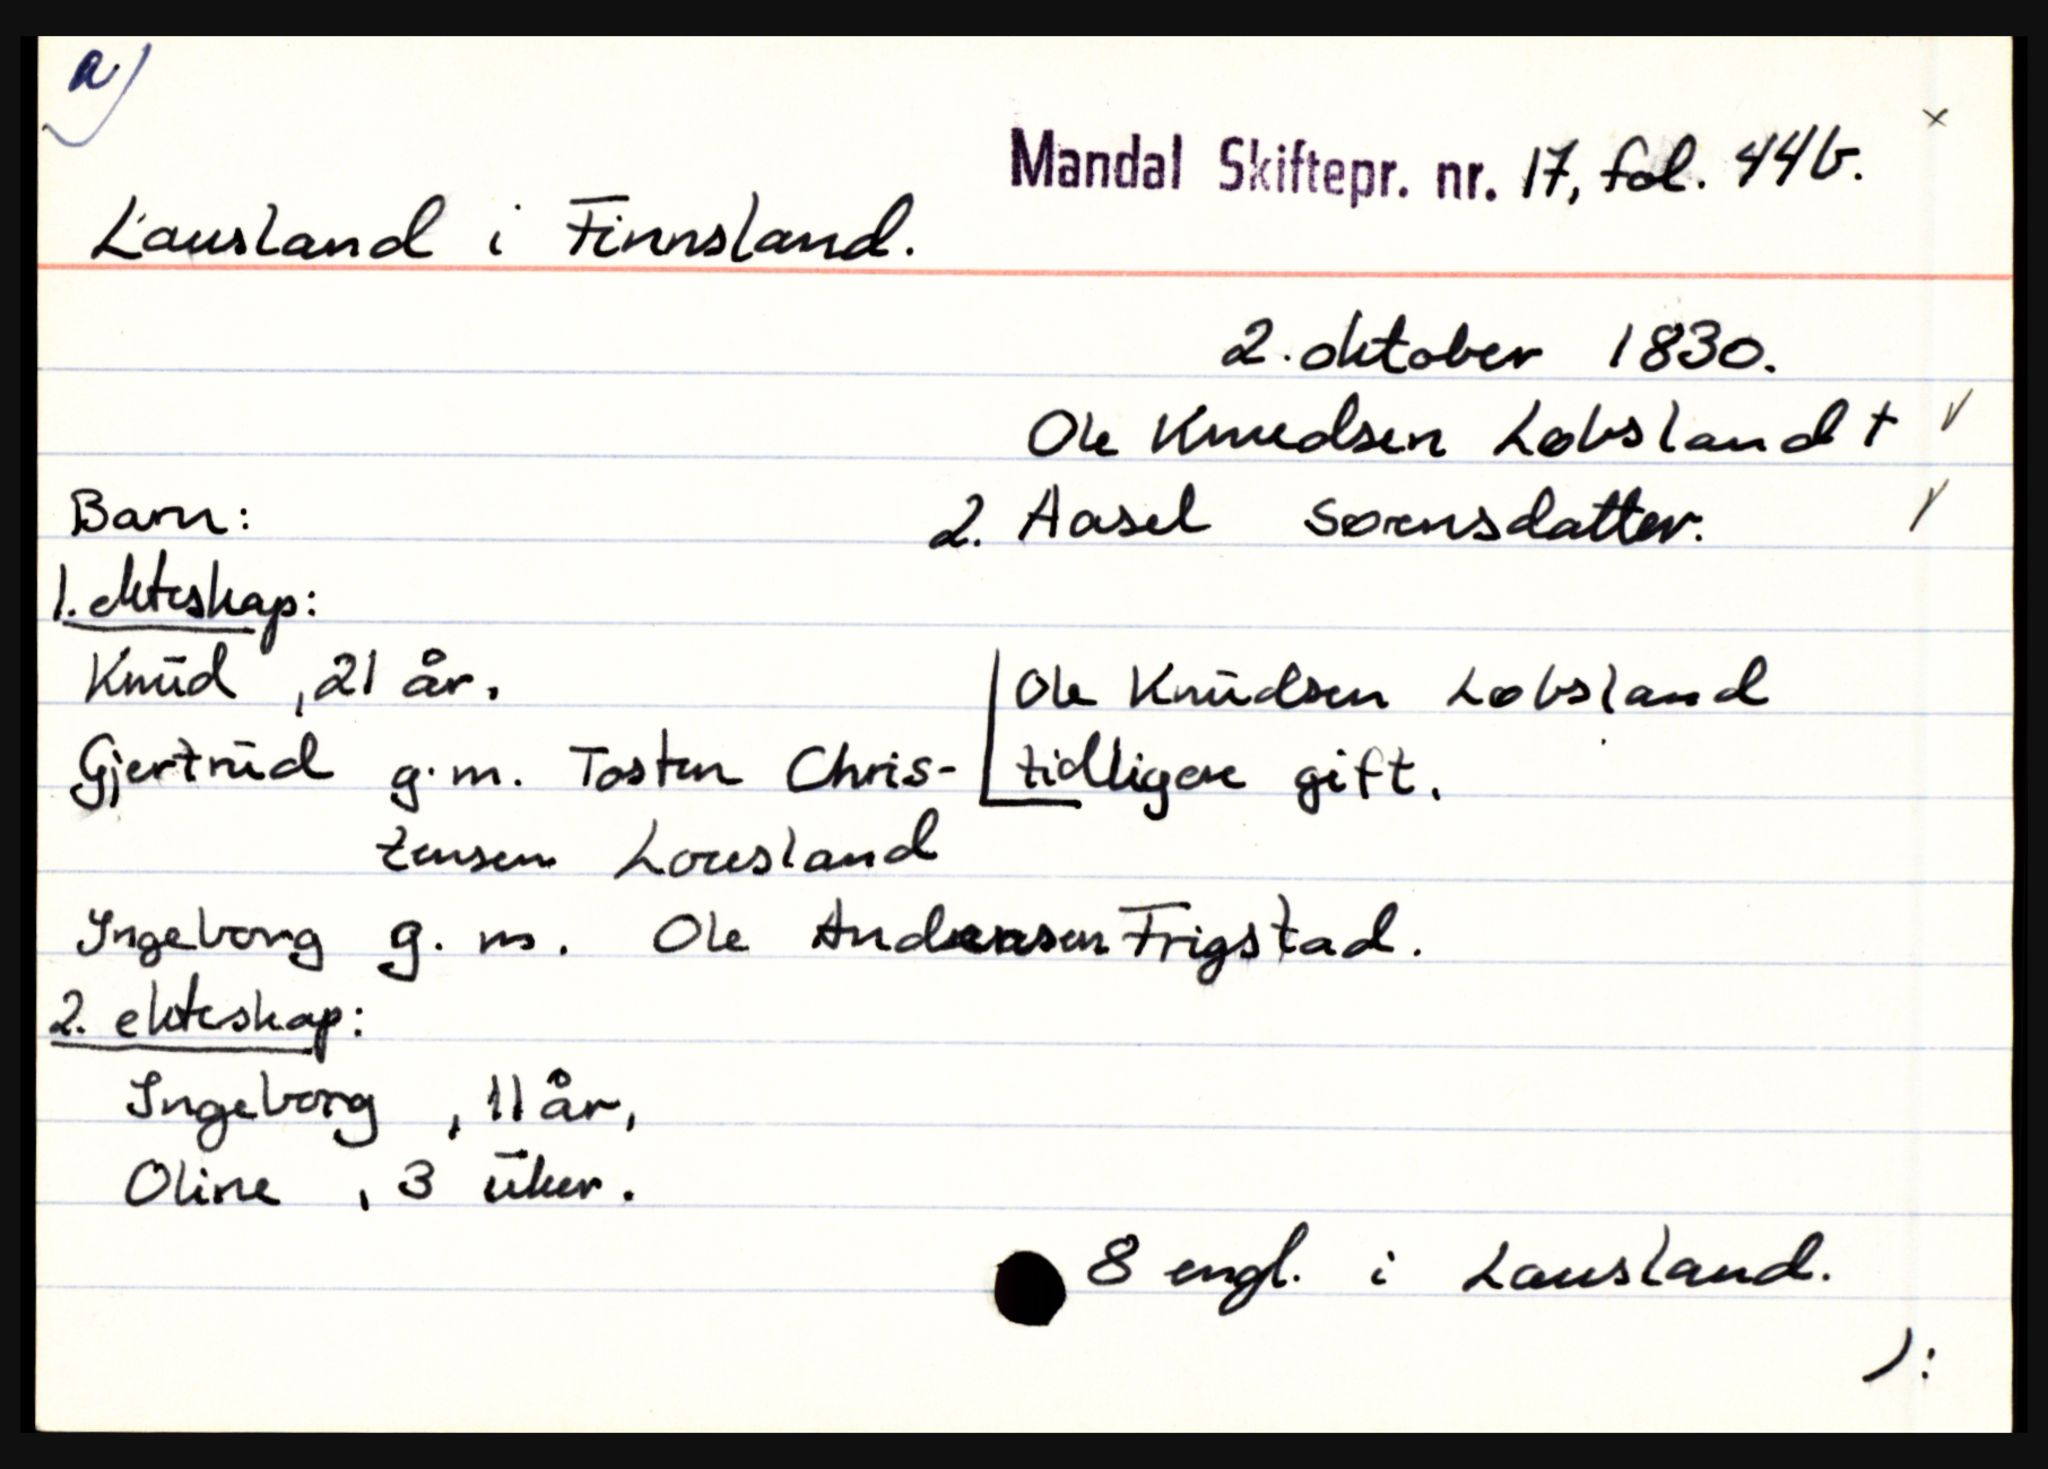 a)
Mandal Skiftepr. nr. 17, fol. 44b.
Lausland i Finnsland.
2. oktober 1830.
Ole Knudsen Løbsland †
Barn:
2. Aasel Sørensdatter.
1. ekteskap:
Knud , 21 år.
Ole Knudsen Løbsland
Gjertrud g. m. Tosten Chris-
tidligere gift.
tensen Lousland
Ingeborg g. m. Ole Andersen Frigstad.
2. ekteskap:
Ingeborg , 11 år,
Oline , 3 uker.
8 engl. i Lausland.
):